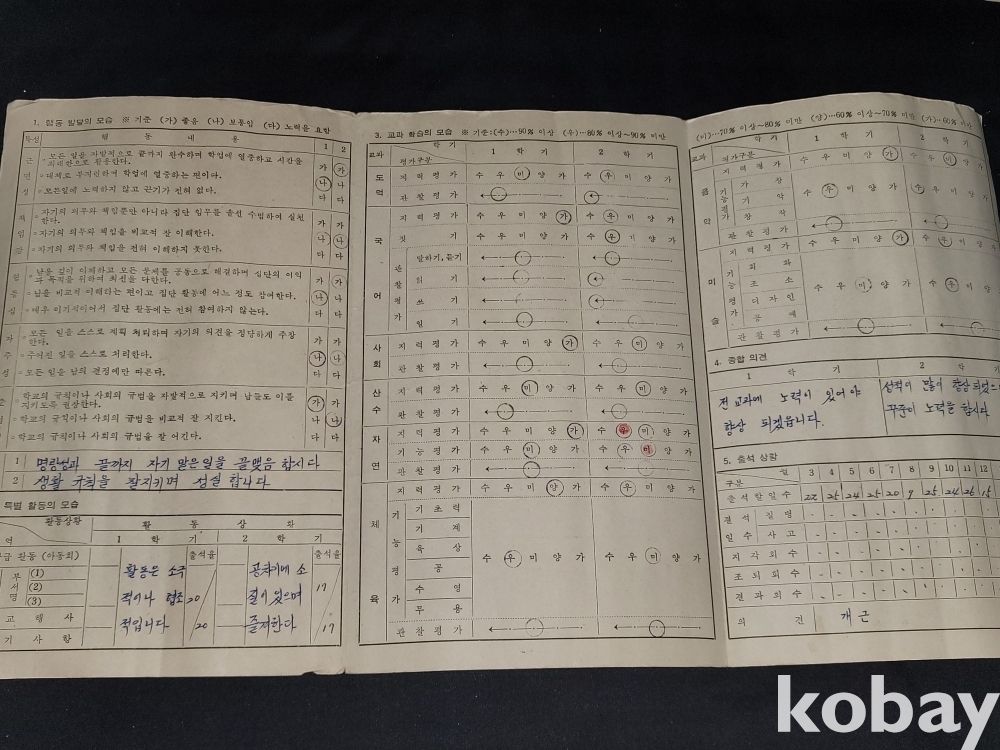 1. 행동 발달의 모습 ※ 기준 (가) 좋음 (나) 보통임 (다) 노력을 요함
특성 행동내용 1 2
근면성
모든 일을 자발적으로 끝까지 완수하며 학업에 열중하고 시간을
최대한으로 활용한다. 가 가
대체로 부지런하며 학업에 열중하는 편이다. 나 나
모든일에 노력하지 않고 끈기가 전혀 없다. 다 다
책임감
자기의 의무와 책임뿐만 아니라 집단 임무를 솔선 수범하여 실천
한다. 가 가
자기의 의무와 책임을 비교적 잘 이해한다. 나 나
자기의 의무와 책임을 전혀 이해하지 못한다. 다 다
협동심
남을 깊이 이해하고 모든 문제를 공동으로 해결하며 집단의 이익
과 목적을 위하여 최선을 다한다. 가 가
남을 비교적 이해하는 편이고 집단 활동에 어느 정도 참여한다. 나 나
매우 이기적이어서 집단 활동에는 전혀 참여하지 않는다. 다 다
자주성
모든 일을 스스로 계획 처리하며 자기의 의견을 정당하게 주장
한다. 가 가
주어진 일을 스스로 처리한다. 나 나
모든 일을 남의 결정에만 따른다. 다 다
준
학교의 규칙이나 사회의 규범을 자발적으로 지키며 남들도 이를
지키도록 권장한다. 가 가
학교의 규칙이나 사회의 규범을 비교적 잘 지킨다. 나 나
학교의 규칙이나 사회의 규범을 잘 어긴다. 다 다
1 명랑성과 끝까지 자기 맡은일을 끝맺음 합시다
2 생활 규칙을 잘지키며 성실 합니다
특별 활동의 모습
활동상황 활동상황
역 1 학기 2 학기
급 활동 (아동회) 출석율 출석율
부서명 (1) (2) (3)
활동은 소극
적이나 협조
적입니다
20 20
공차기에 소
질이 있으며
즐겨한다
17 17
교 행사
기사항
3. 교과 학습의 모습 ※ 기준:(수)…90% 이상 (우)…80% 이상~90% 미만
교과 평가구분 학기 1 학기 2 학기
도덕
지력평가 수 우 미 양 가 수 우 미 양 가
관찰평가
국어
지력평가 수 우 미 양 가 수 우 미 양 가
짓기 수 우 미 양 가 수 우 미 양 가
관찰평가
말하기, 듣기
읽기
쓰기
일기
사회
지력평가 수 우 미 양 가 수 우 미 양 가
관찰평가
산수
지력평가 수 우 미 양 가 수 우 미 양 가
관찰평가
자연
지력평가 수 우 미 양 가 수 우 미 양 가
기능평가 수 우 미 양 가 수 우 미 양 가
관찰평가
체육
지력평가 수 우 미 양 가 수 우 미 양 가
기능평가 수 우 미 양 가 수 우 미 양 가
기초력
기계
육상
공
수영
무용
관찰평가
(미)…70% 이상~80% 미만 (양)…60% 이상~70% 미만 (가)…60% 미만
교과 평가구분 1 학기 2
음악
지력평가 수 우 미 양 가 수 우 미 양
기능평가 수 우 미 양 가 수 우 미 양
가창
기악
창작
관찰평가
미술
지력평가 수 우 미 양 가 수 우 미 양
기능평가 수 우 미 양 가 수 우 미 양
회화
조소
디자인
공예
관찰평가
4. 종합 의견
1 학기 2 학기
전 교과에 노력이 있어야
향상 되겠읍니다.
성적이 많이 향상 되었으
꾸준이 노력을 합시다
5. 출석 상황
구분 월 3 4 5 6 7 8 9 10 11 12
출석할일수 22 25 24 25 20 9 25 24 26 15
결석 질병
일수 사고
지각회수
조퇴회수
결과회수
의견 개근
kobay